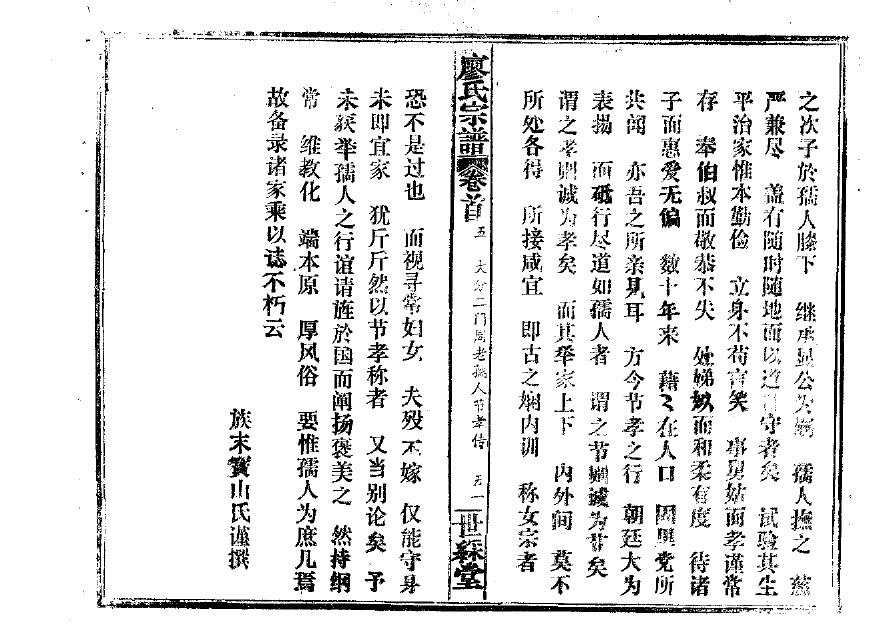 之次子於孺人膝下 继承显公为嗣 孺人抚之 慈
严兼尽 盖有随时随地而以道自守者矣 试验其生
平治家惟本勤俭 立身不苟言笑 事舅姑而孝谨常
存 奉伯叔而敬恭不失 处娣姒而和柔有度 待诸
子而惠爱无偏 数十年来 藉〻在人口 固里党所
共闻 亦吾之所亲见耳 方今节孝之行 朝廷大为
表扬 而砥行尽道如孺人者 谓之节则诚为节矣
谓之孝则诚为孝矣 而其举家上下 内外间 莫不
所处各得 所接咸宜 即古之娴内训 称女宗者
廖氏宗谱 卷首 五 大分二门周老孺人节孝传 五一 世綵堂
恐不是过也 而视寻常妇女 夫殁不嫁 仅能守身
未即宜家 犹斤斤然以节孝称者 又当别论矣 予
未获举孺人之行谊请旌於国而阐扬褒美之 然持纲
常 维教化 端本原 厚风俗 要惟孺人为庶几焉
故备录诸家乘以誌不朽云
族末寳山氏谨撰